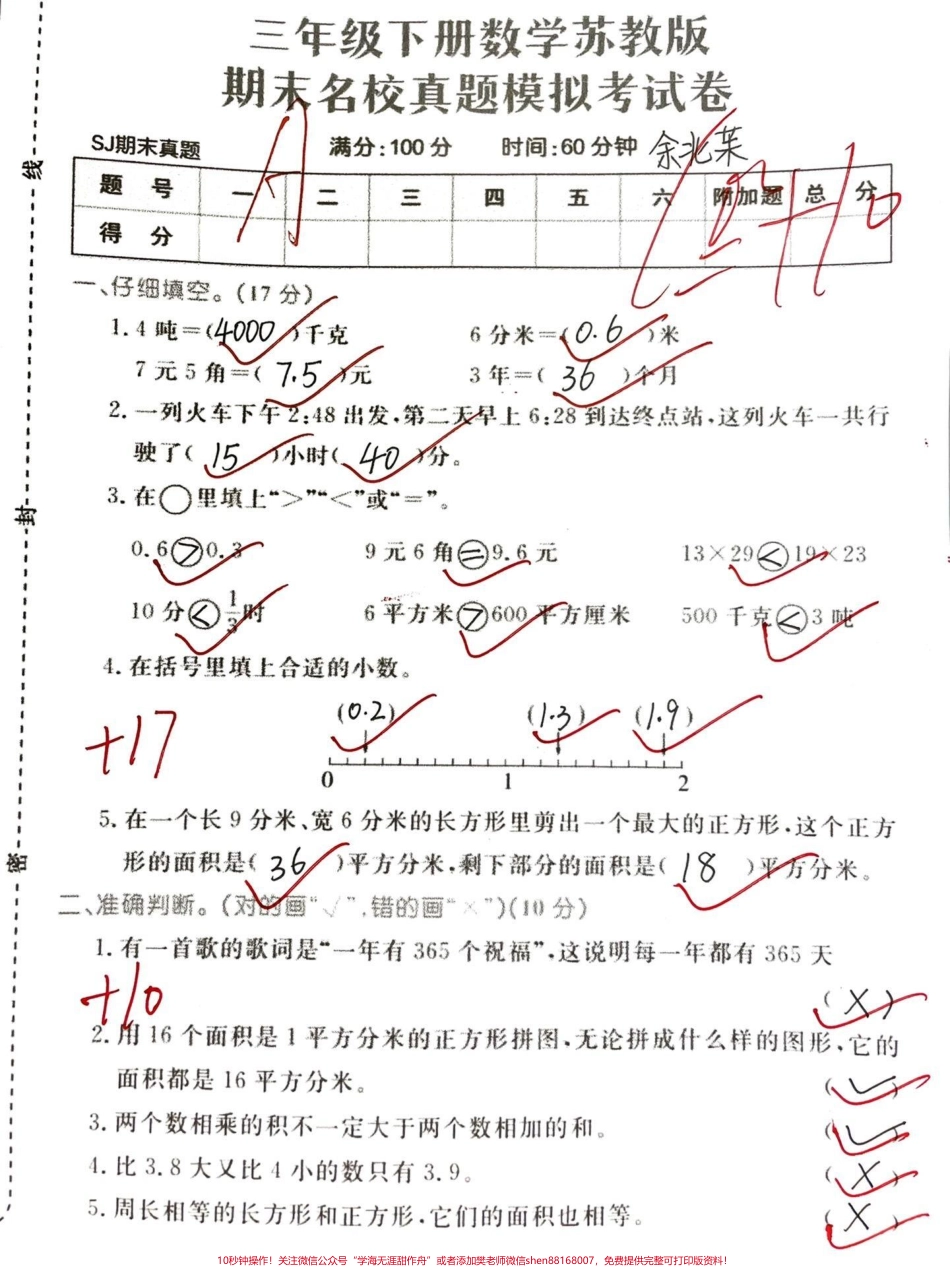 三年级下册数学苏教版
期末名校真题模拟考试卷
SJ期末真题 满分:100分 时间:60分钟 余北茉
题号 一 二 三 四 五 六 附加题 总分
得分
A
+10
一、仔细填空。(17分)
1.4吨=(4000)千克 6分米=(0.6)米
7元5角=(7.5)元 3年=(36)个月
2.一列火车下午2:48出发,第二天早上6:28到达终点站,这列火车一共行
驶了(15)小时(40)分。
3.在○里填上“>”“<”或“=”。
0.6>0.3 9元6角=9.6元 13×29<19×23
10分<1/3时 6平方米>600平方厘米 500千克<3吨
4.在括号里填上合适的小数。
+17
(0.2) (1.3) (1.9)
0 1 2
5.在一个长9分米、宽6分米的长方形里剪出一个最大的正方形,这个正方
形的面积是(36)平方分米,剩下部分的面积是(18)平方分米。
二、准确判断。(对的画“√”,错的画“×”)(10分)
1.有一首歌的歌词是“一年有365个祝福”,这说明每一年都有365天
+10
(×)
2.用16个面积是1平方分米的正方形拼图,无论拼成什么样的图形,它的
面积都是16平方分米。 (√)
3.两个数相乘的积不一定大于两个数相加的和。 (√)
4.比3.8大又比4小的数只有3.9。 (×)
5.周长相等的长方形和正方形,它们的面积也相等。 (×)
线
封
密
10秒钟操作!关注微信公众号“学海无涯甜作舟”或者添加樊老师微信shen88168007,免费提供完整可打印版资料!